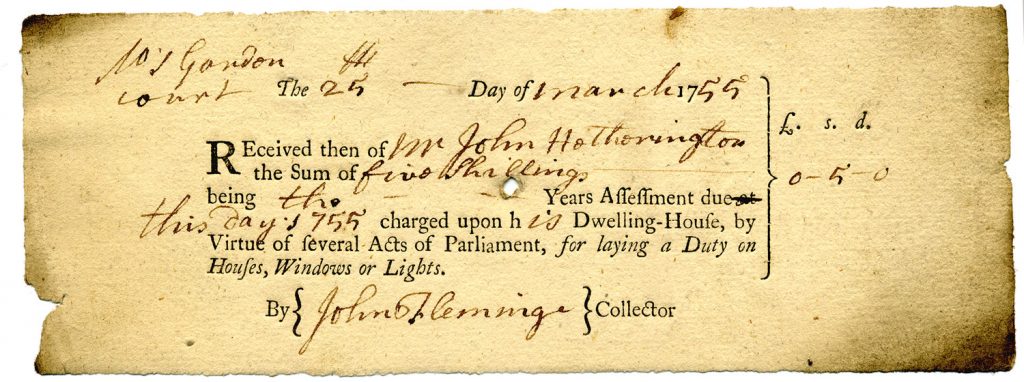 No 1 Gordon
court The 25th — Day of march 1755
£. s. d.
REceived then of Mr John Hetherington
the Sum of five Shillings 0-5-0
being the - - Years Aſſeſſment due at
this day 1755 charged upon his Dwelling-Houſe, by
Virtue of ſeveral Acts of Parliament, for laying a Duty on
Houſes, Windows or Lights.
By { John Fleminge } Collector